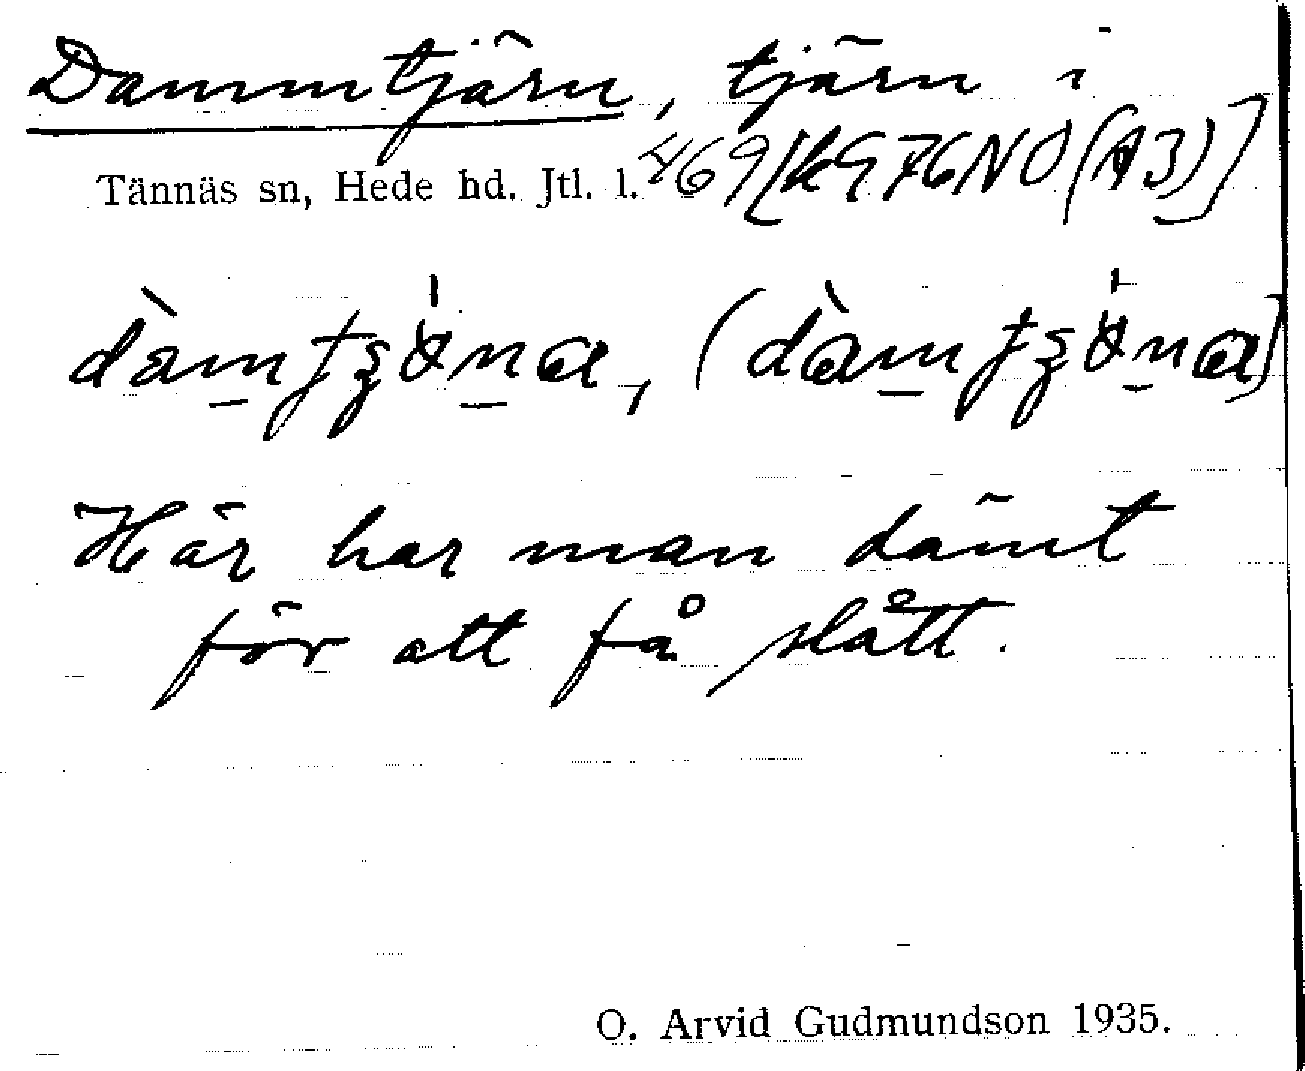 Dammtjärn, tjärn i
Tännäs sn, Hede hd. Jtl. l. 469 [k976NO(A3)]
Här har man dämt
för att få slått.
O. Arvid Gudmundson 1935.